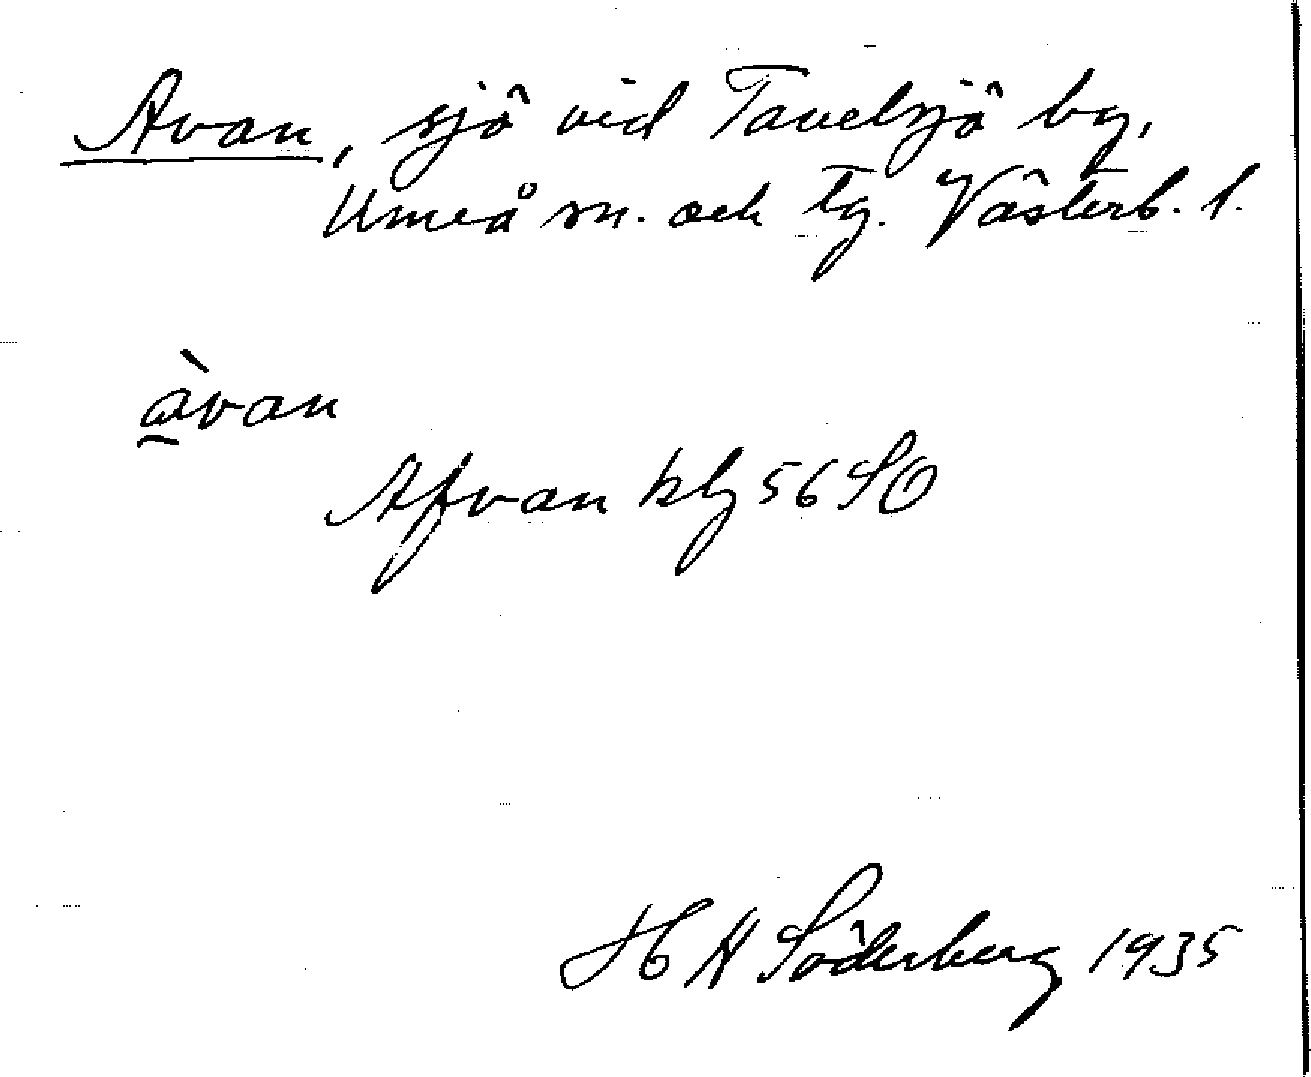 Avan, sjö vid Tavelsjö by,
Umeå sn. och tg. Västerb. l.
àvan
Afvan kbl 56 SO
H A Söderberg 1935